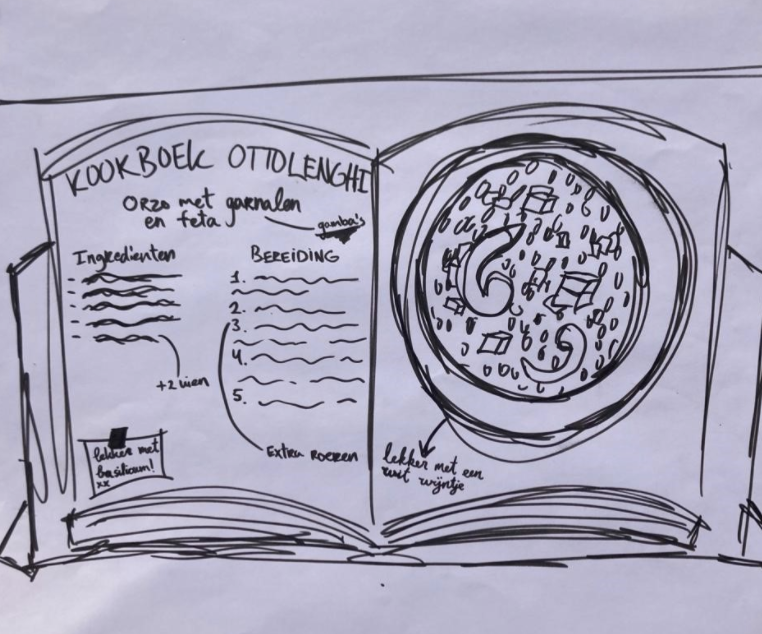 KOOKBOEK OTTOLENGHI
Orzo met garnalen
en feta
gamba's
Ingrediënten
+2 uien
lekker met
basilicum!
xx
BEREIDING
1.
2.
3.
4.
5.
Extra roeren
lekker met een
wit wijntje